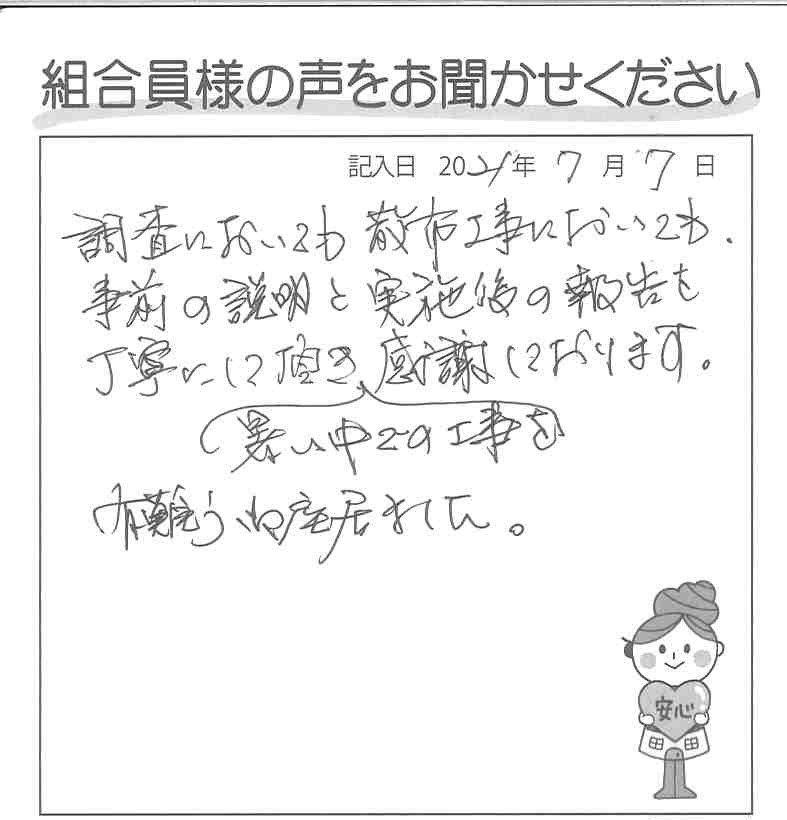 組合員様の声をお聞かせください
記入日 2021年 7月 7日
調査においても 散布工事においても、
事前の説明と実施後の報告を
丁寧にして頂き 感謝しております。
(暑い中での工事を)
有難う御座居ました。
安心